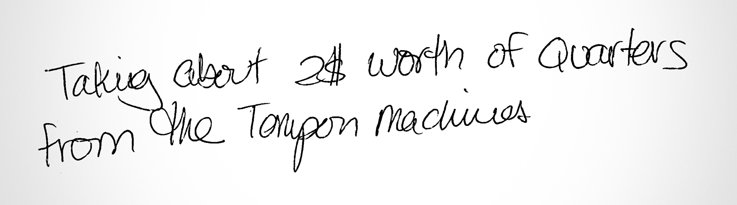 Taking about 2$ worth of Quarters
from the Tampon Machines